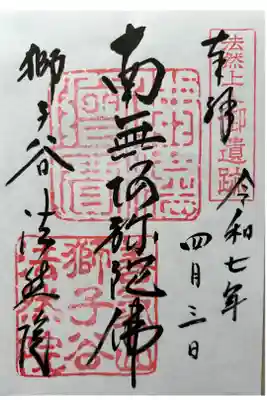 法然上人御遺跡
奉拝
令和七年
四月三日
南無阿弥陀佛
獅子谷
法然院
獅子谷